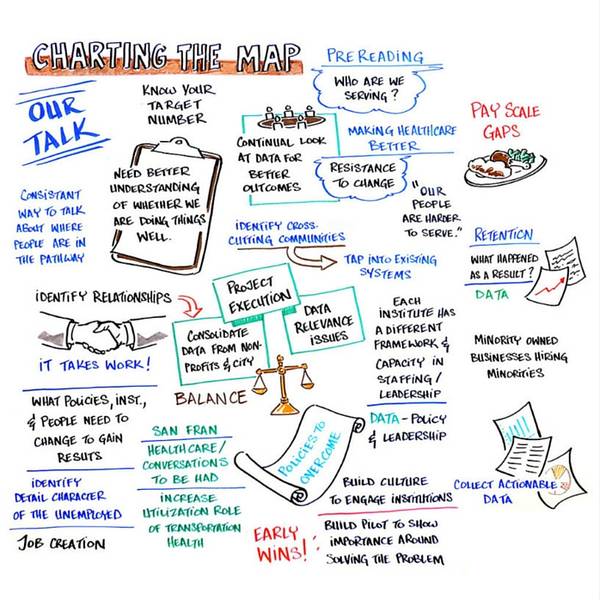 CHARTING THE MAP
OUR
TALK
KNOW YOUR
TARGET
NUMBER
PREREADING
WHO ARE WE
SERVING?
PAY SCALE
GAPS
CONTINUAL LOOK
AT DATA FOR
BETTER
OUTCOMES
MAKING HEALTHCARE
BETTER
RESISTANCE
TO CHANGE
NEED BETTER
UNDERSTANDING
OF WHETHER WE
ARE DOING THINGS
WELL.
CONSISTANT
WAY TO TALK
ABOUT WHERE
PEOPLE ARE IN
THE PATHWAY
"OUR
PEOPLE
ARE HARDER
TO SERVE."
IDENTIFY CROSS-
CUTTING COMMUNITIES
TAP INTO EXISTING
SYSTEMS
RETENTION
WHAT HAPPENED
AS A RESULT?
DATA
IDENTIFY RELATIONSHIPS
IT TAKES WORK!
PROJECT
EXECUTION
CONSOLIDATE
DATA FROM NON-
PROFITS & CITY
DATA
RELEVANCE
ISSUES
BALANCE
EACH
INSTITUTE HAS
A DIFFERENT
FRAMEWORK &
CAPACITY IN
STAFFING /
LEADERSHIP
MINORITY OWNED
BUSINESSES HIRING
MINORITIES
WHAT POLICIES, INST.,
& PEOPLE NEED TO
CHANGE TO GAIN
RESUTS
SAN FRAN
HEALTHCARE/
CONVERSATIONS
TO BE HAD
POLICIES TO
OVERCOME
DATA - POLICY
& LEADERSHIP
IDENTIFY
DETAIL CHARACTER
OF THE UNEMPLOYED
INCREASE
UTILIZATION ROLE
OF TRANSPORTATION
HEALTH
BUILD CULTURE
TO ENGAGE INSTITUTIONS
COLLECT ACTIONABLE
DATA
JOB CREATION
EARLY
WINS!
BUILD PILOT TO SHOW
IMPORTANCE AROUND
SOLVING THE PROBLEM